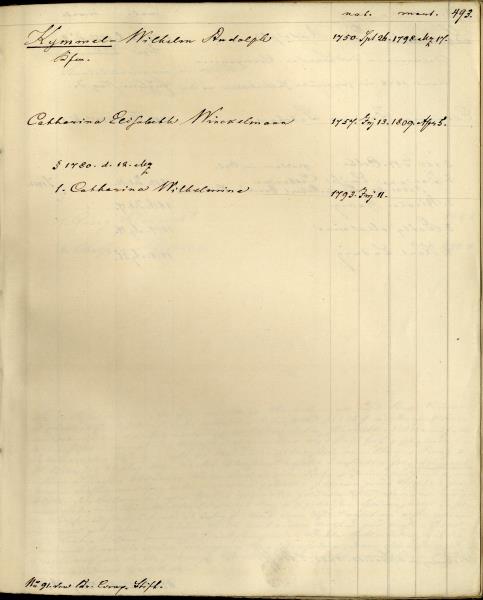 nat. mort. 493.
Kymmel. Wilhelm Rudolph 1750. Spt 26. 1798. Mz 17.
Catharina Elisabeth Winckelmann 1757. Frj 13. 1809. Apr 5.
§ 1780. d. 12. Mz
1. Catharina Wilhelmine 1793. Frj 11.